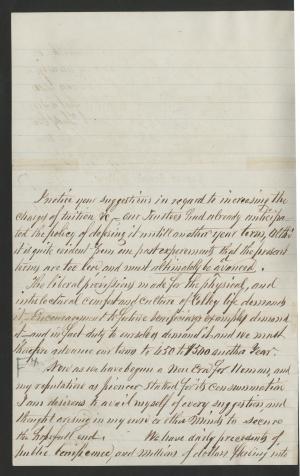 I notice your suggestions in regard to increasing the
charges of tuition &c - our Trustees had already anticipa-
ted the policy of defering it until another year
it is quite evident from our past experiments that the present
terms are too low and must ultimately be advanced.
The liberal provisions made for the physical, and
intellectual comfort and culture of life demands
it - Encouragement to future beneficiaries
it - and in fact duty to ourselves demand it and we must
therefore advance our Terms to 450 to $500 another Year.
Now as we have begun a New Era for Woman, and
my reputation as pioneer Staked for its consummation
I am desirous to avail myself of every suggestion and
thought arising in my own or other Minds to secure
the hopefull end. We have daily
public confidence, and millions of dollars into